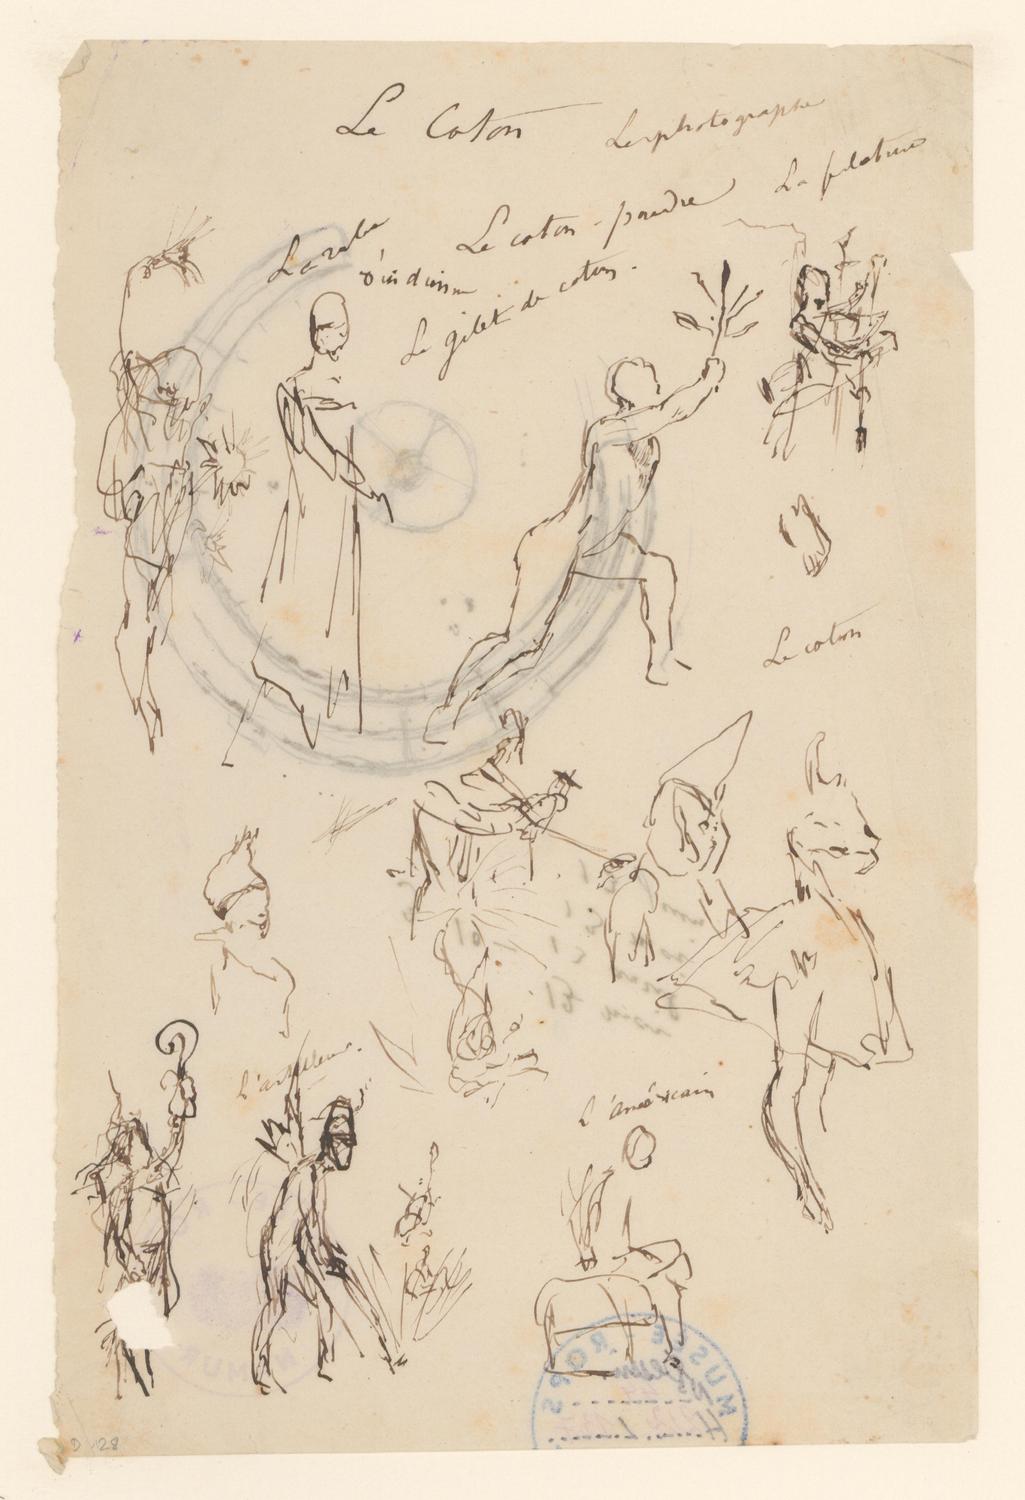 Le Coton
Le photographe
La filature
Le coton-poudre
La robe
d'indienne
Le gilet de coton.
Le coton
L'artilleur.
L'américain
MUSEE ROPS
NAMUR
D 128